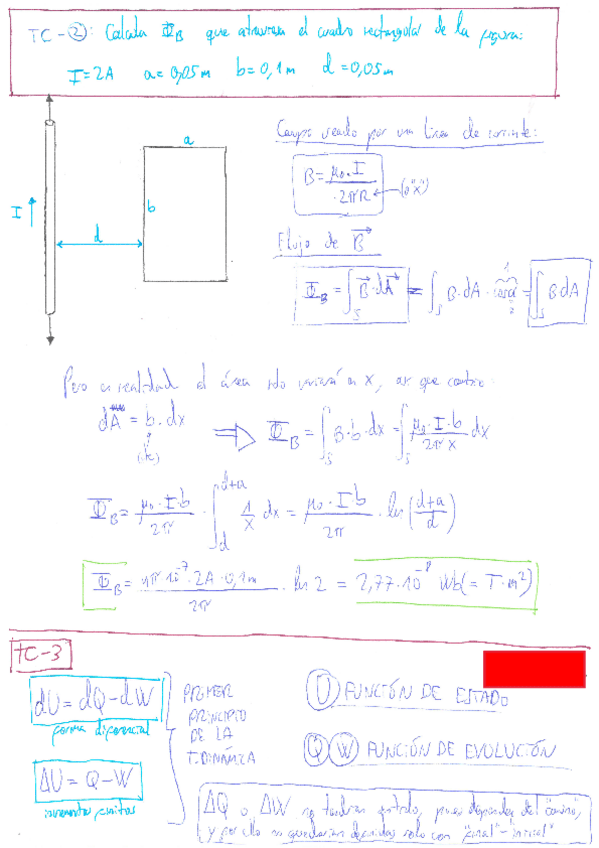 TC-②: Calcula Φ_B que atraviesa el cuadro rectangular de la figura:
I=2A a=0,05m b=0,1m d=0,05m
Campo creado por una línea de corriente:
a
B = μ₀·I / 2πR ← (o "x")
I ↑
b
d
Flujo de B⃗
Φ_B = ∫_S B⃗·dA⃗ = ∫_S B·dA·cosα = ∫∫_S B·dA
Pero en realidad el área sólo variará en x, así que
dA = b·dx ⟹ Φ_B = ∫_S B·b·dx = ∫_S μ₀·I·b / 2πx dx
(cte)
Φ_B = μ₀·I·b / 2π · ∫_d^{d+a} 1/x dx = μ₀·I·b / 2π · ln((d+a)/d)
Φ_B = 4π·10⁻⁷·2A·0,1m / 2π · ln 2 = 2,77·10⁻⁸ Wb (= T·m²)
TC-3
dU = dQ - dW
forma diferencial
ΔU = Q - W
incrementos finitos
PRIMER
PRINCIPIO
DE LA
T.DINÁMICA
U FUNCIÓN DE ESTADO
Q W FUNCIÓN DE EVOLUCIÓN
ΔQ o ΔW no tendrían sentido, pues dependen del "camino",
y por ello no quedarían definidas solo con "final"-"inicial"